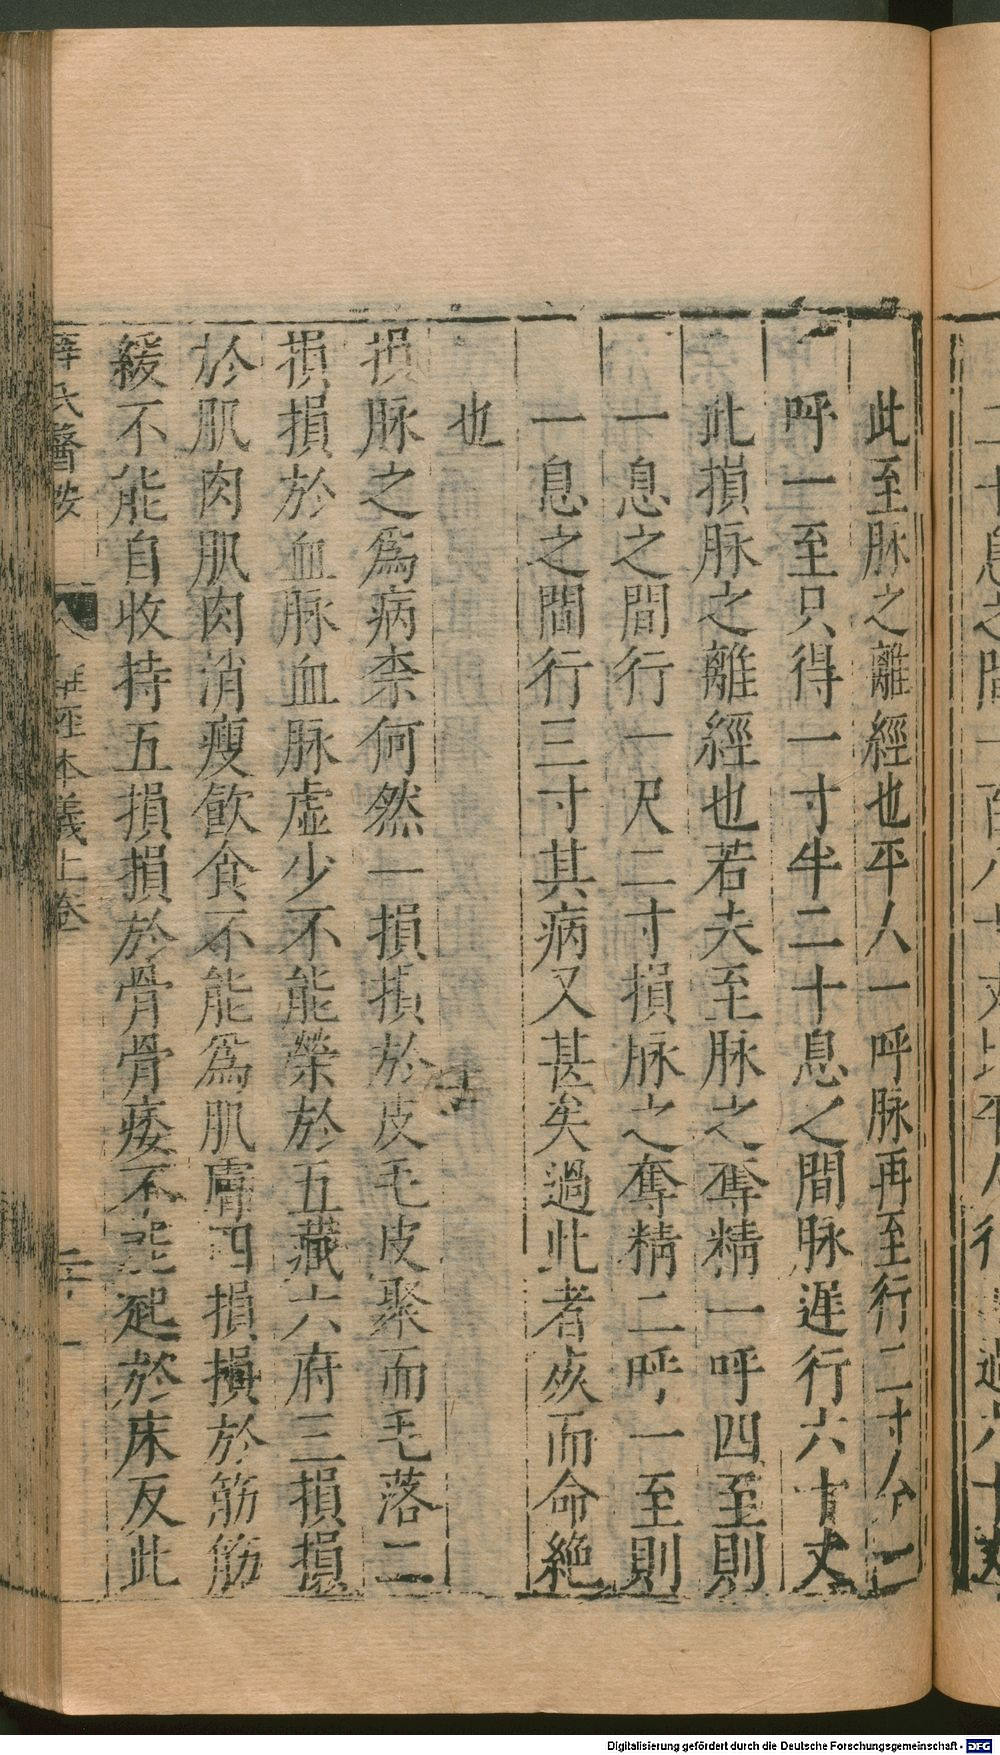 此至脉之離經也平人一呼脉再至行二寸今一
呼一至只得一寸半二十息之間脉遲行六十丈
此損脉之離經也若夫至脉之奪精一呼四至則
一息之間行一尺二寸損脉之奪精二呼一至則
一息之間行三寸其病又甚矣過此者死而命絶
也
損脉之爲病柰何然一損損於皮毛皮聚而毛落二
損損於血脉血脉虚少不能榮於五藏六府三損損
於肌肉肌肉消瘦飲食不能爲肌膚四損損於筋筋
緩不能自收持五損損於骨骨痿不能起於床反此
薛氏醫按 難經本義上卷
Digitalisierung gefördert durch die Deutsche Forschungsgemeinschaft - DFG